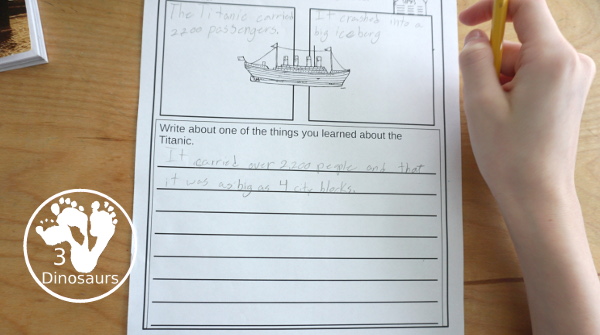 The Titanic carried
2200 passengers.
It crashed into a
big iceberg
Write about one of the things you learned about the
Titanic.
It carried over 2200 people and that
it was as big as 4 city blocks.
3
Dinosaurs